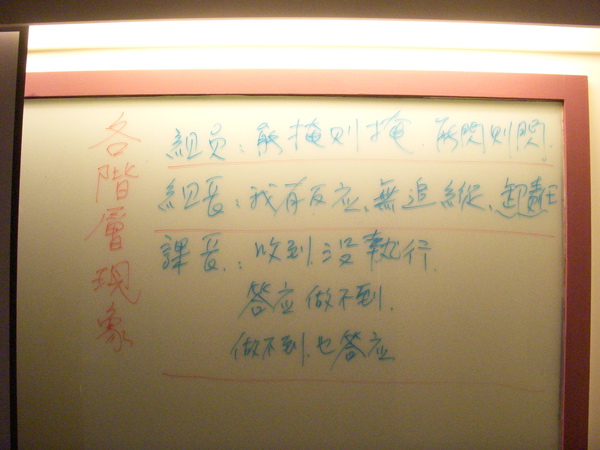 各階層現象
組员:能掩则掩.能閃则閃.
組長:我有反应、無追縱、卸責任
課長:收到.没執行.
答应做不到.
做不到.也答应